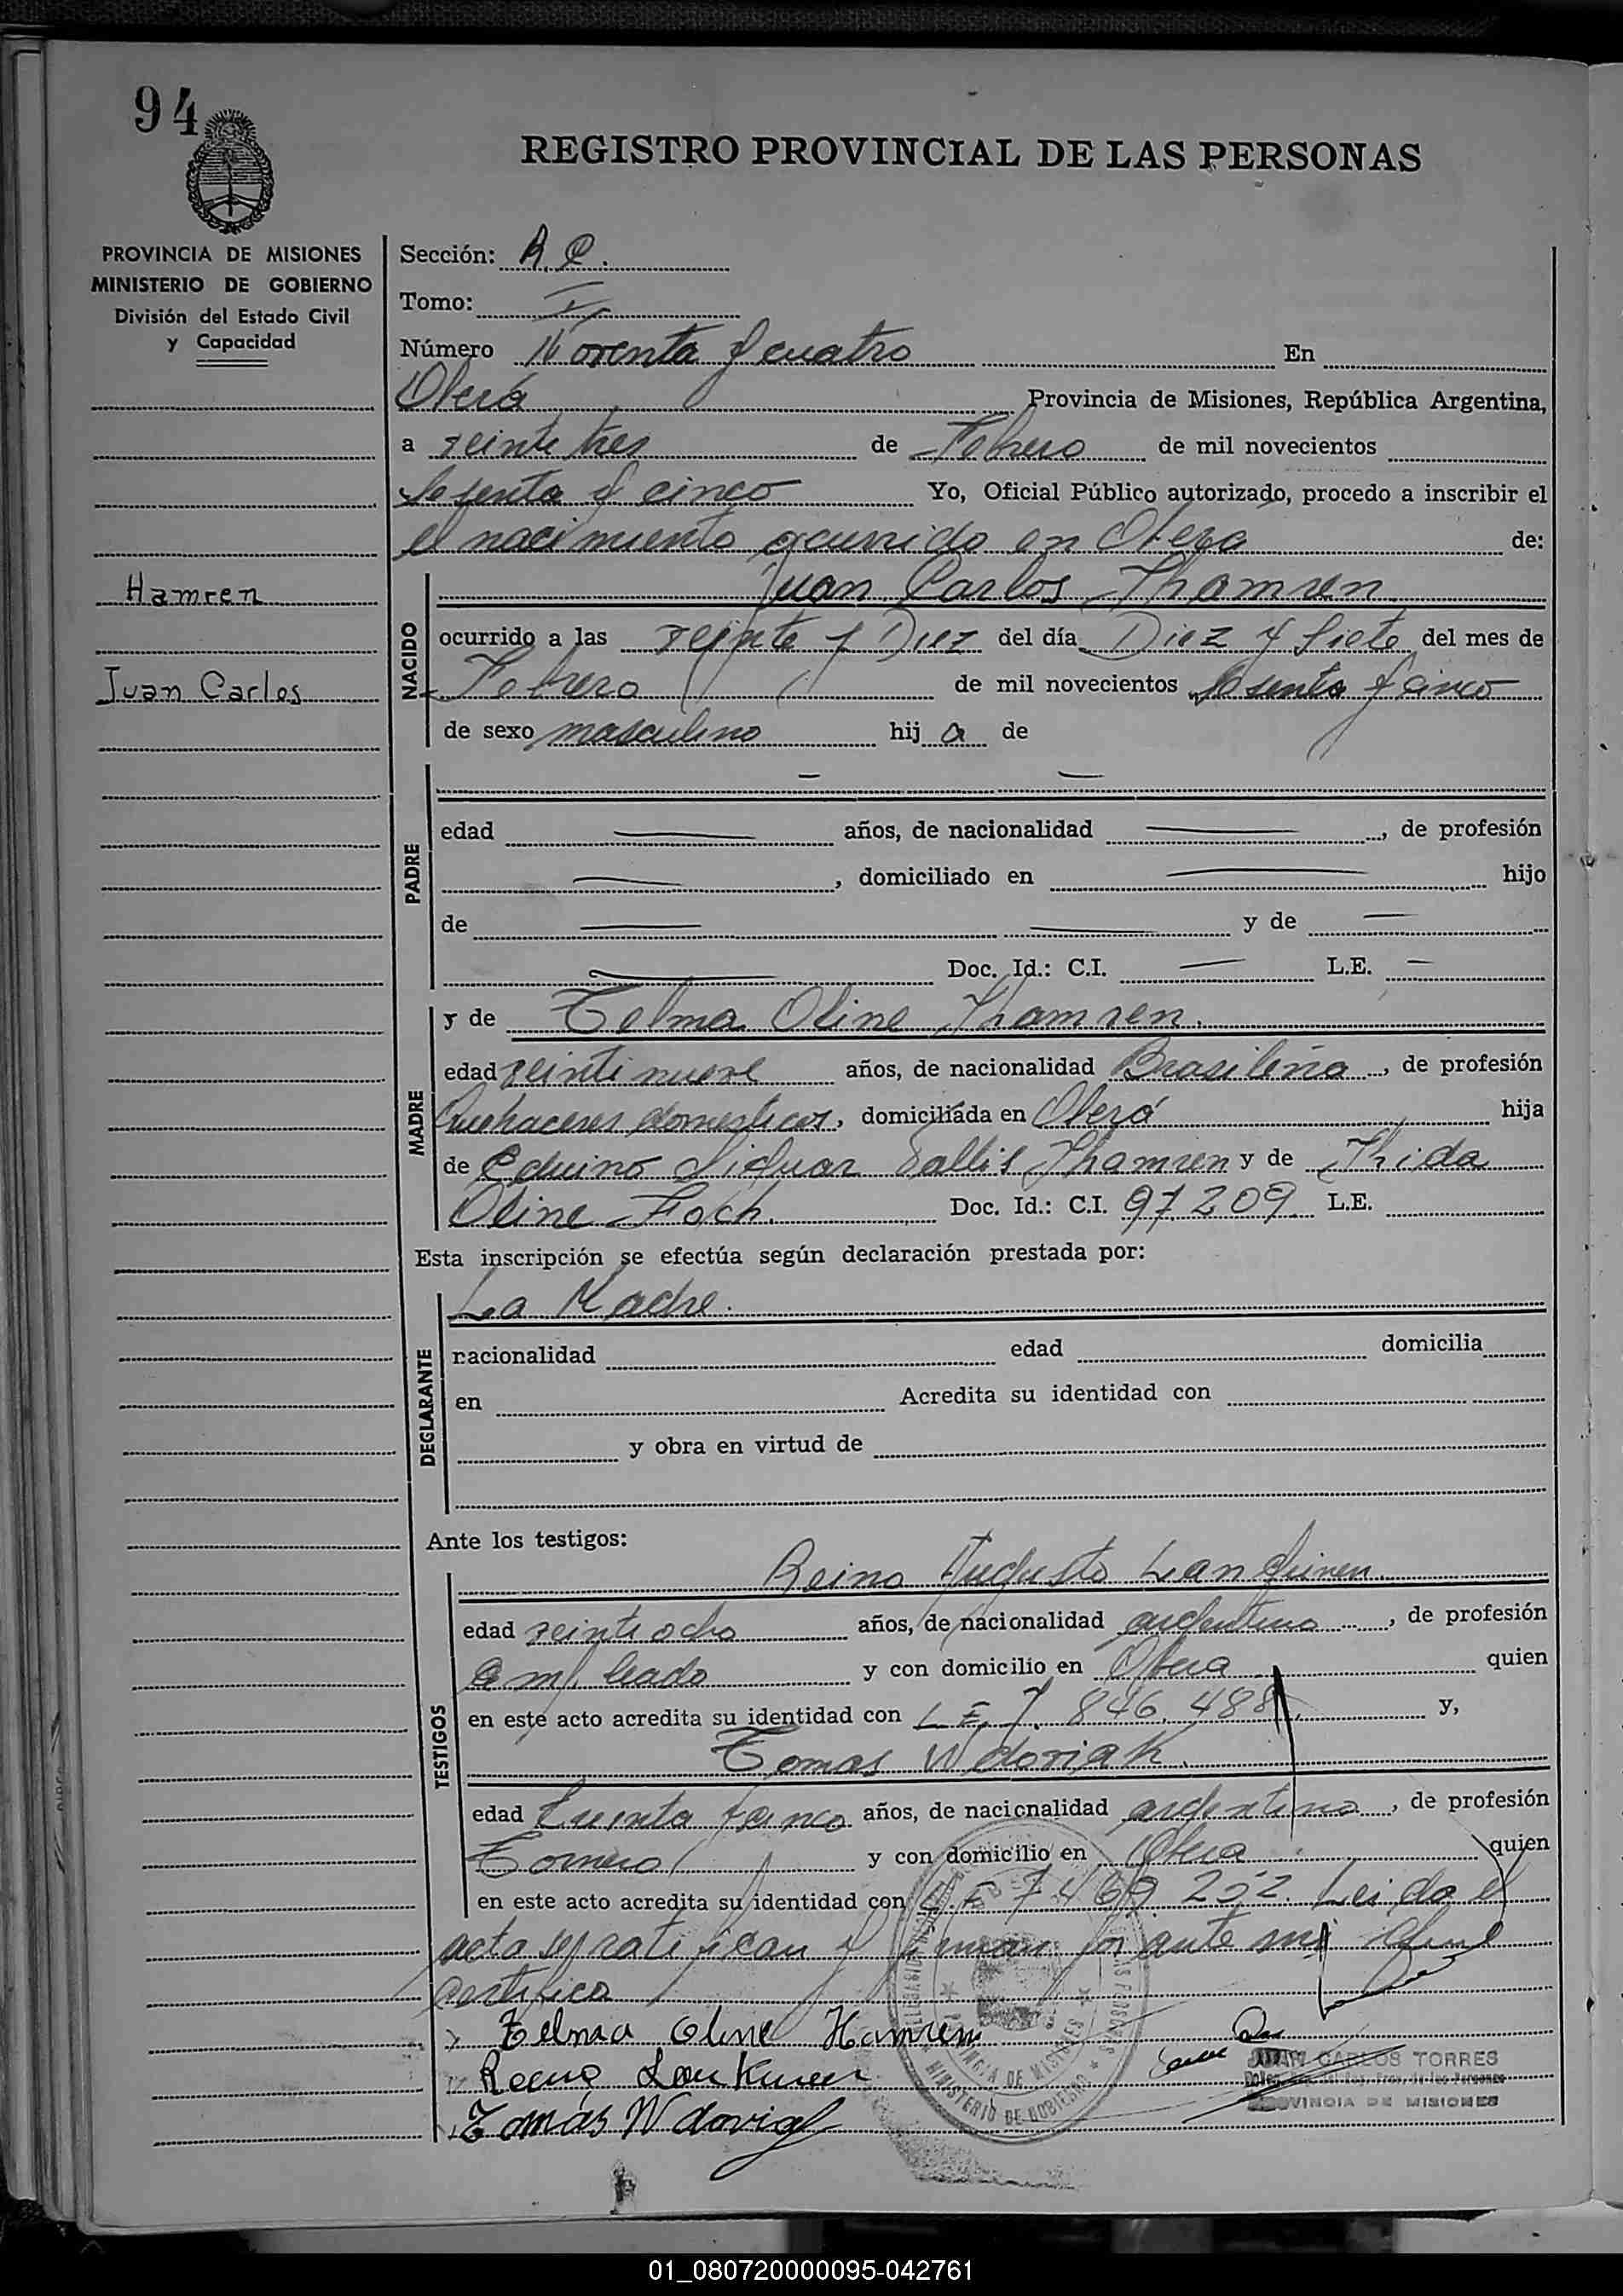 94
REGISTRO PROVINCIAL DE LAS PERSONAS
PROVINCIA DE MISIONES
MINISTERIO DE GOBIERNO
División del Estado Civil
y Capacidad
Hamren
Juan Carlos
Sección: R. C.
Tomo: I
Número Noventa y cuatro En
Oberá Provincia de Misiones, República Argentina,
a veinte tres de Febrero de mil novecientos
Sesenta y cinco Yo, Oficial Público autorizado, procedo a inscribir el
el nacimiento ocurrido en Obera de:
NACIDO
Juan Carlos Hamren
ocurrido a las veinte y Diez del día Diez y Siete del mes de
Febrero de mil novecientos Sesenta y cinco
de sexo masculino hij a de
PADRE
edad años, de nacionalidad , de profesión
, domiciliado en hijo
de y de
Doc. Id.: C.I. L.E.
MADRE
y de Telma Oline Hamren.
edad veinti nueve años, de nacionalidad Brasileña , de profesión
Quehaceres domesticos, domiciliada en Oberá hija
de Eduino Hamren y de
Oline Doc. Id.: C.I. 97.209. L.E.
Esta inscripción se efectúa según declaración prestada por:
DECLARANTE
La Madre.
nacionalidad edad domicilia
en Acredita su identidad con
y obra en virtud de
Ante los testigos:
TESTIGOS
Reino Augusto Lanquinen.
edad veinti ocho años, de nacionalidad argentino , de profesión
empleado y con domicilio en Obera quien
en este acto acredita su identidad con L E. 7. 846. 488 y,
Tomas Wdoviak.
edad Treinta y cinco años, de nacionalidad argentino , de profesión
Tornero y con domicilio en Obera quien
en este acto acredita su identidad con L. E 7 469 252. Leida el
acta se ratifican y firman por ante mi que
certifico
Telma Oline Hamren
Reino Lankinen
Tomás Wdoviak
MINISTERIO DE GOBIERNO
PROVINCIA DE MISIONES
JUAN CARLOS TORRES
PROVINCIA DE MISIONES
01_080720000095-042761